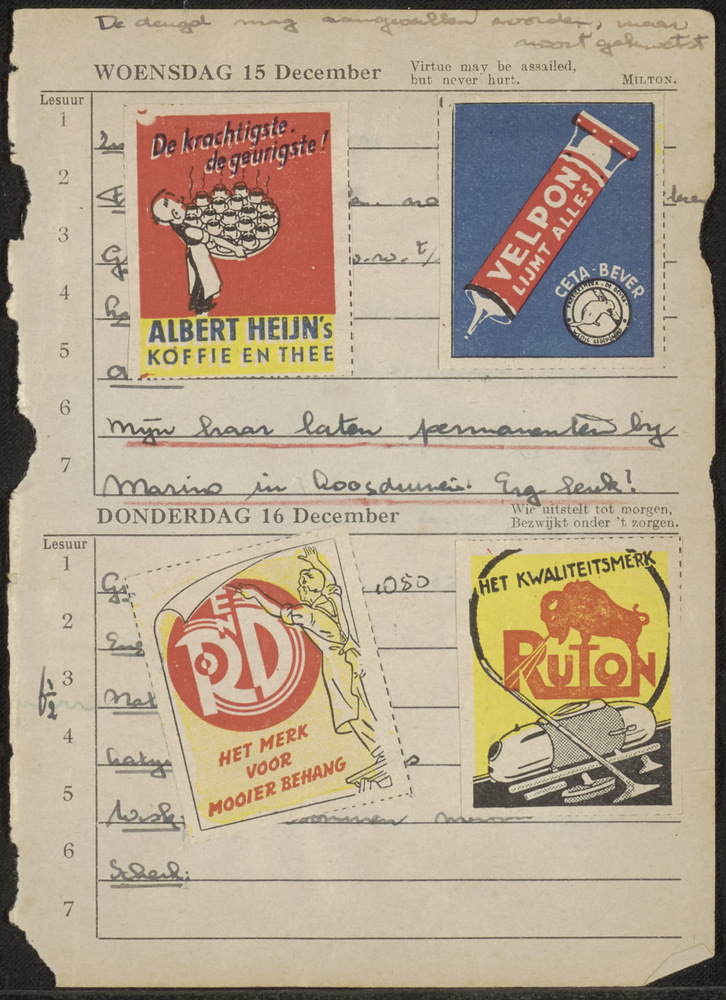 De deugd mag aangevallen worden, maar
nooit gekwetst
WOENSDAG 15 December
Virtue may be assailed,
but never hurt.
MILTON.
Lesuur
1
2
3
4
5
6
7
De krachtigste.
de geurigste!
ALBERT HEIJN's
KOFFIE EN THEE
VELPON
LIJMT ALLES
CETA-BEVER
mijn haar laten permanenten by
Marino in Loosduinen. Erg leuk!
DONDERDAG 16 December
Wie uitstelt tot morgen,
Bezwijkt onder 't zorgen.
Lesuur
1
2
3
4
5
6
7
EN
R D
HET MERK
VOOR
MOOIER BEHANG
HET KWALITEITSMERK
RUTON
Eng
Nat
Wisk
Scheik: